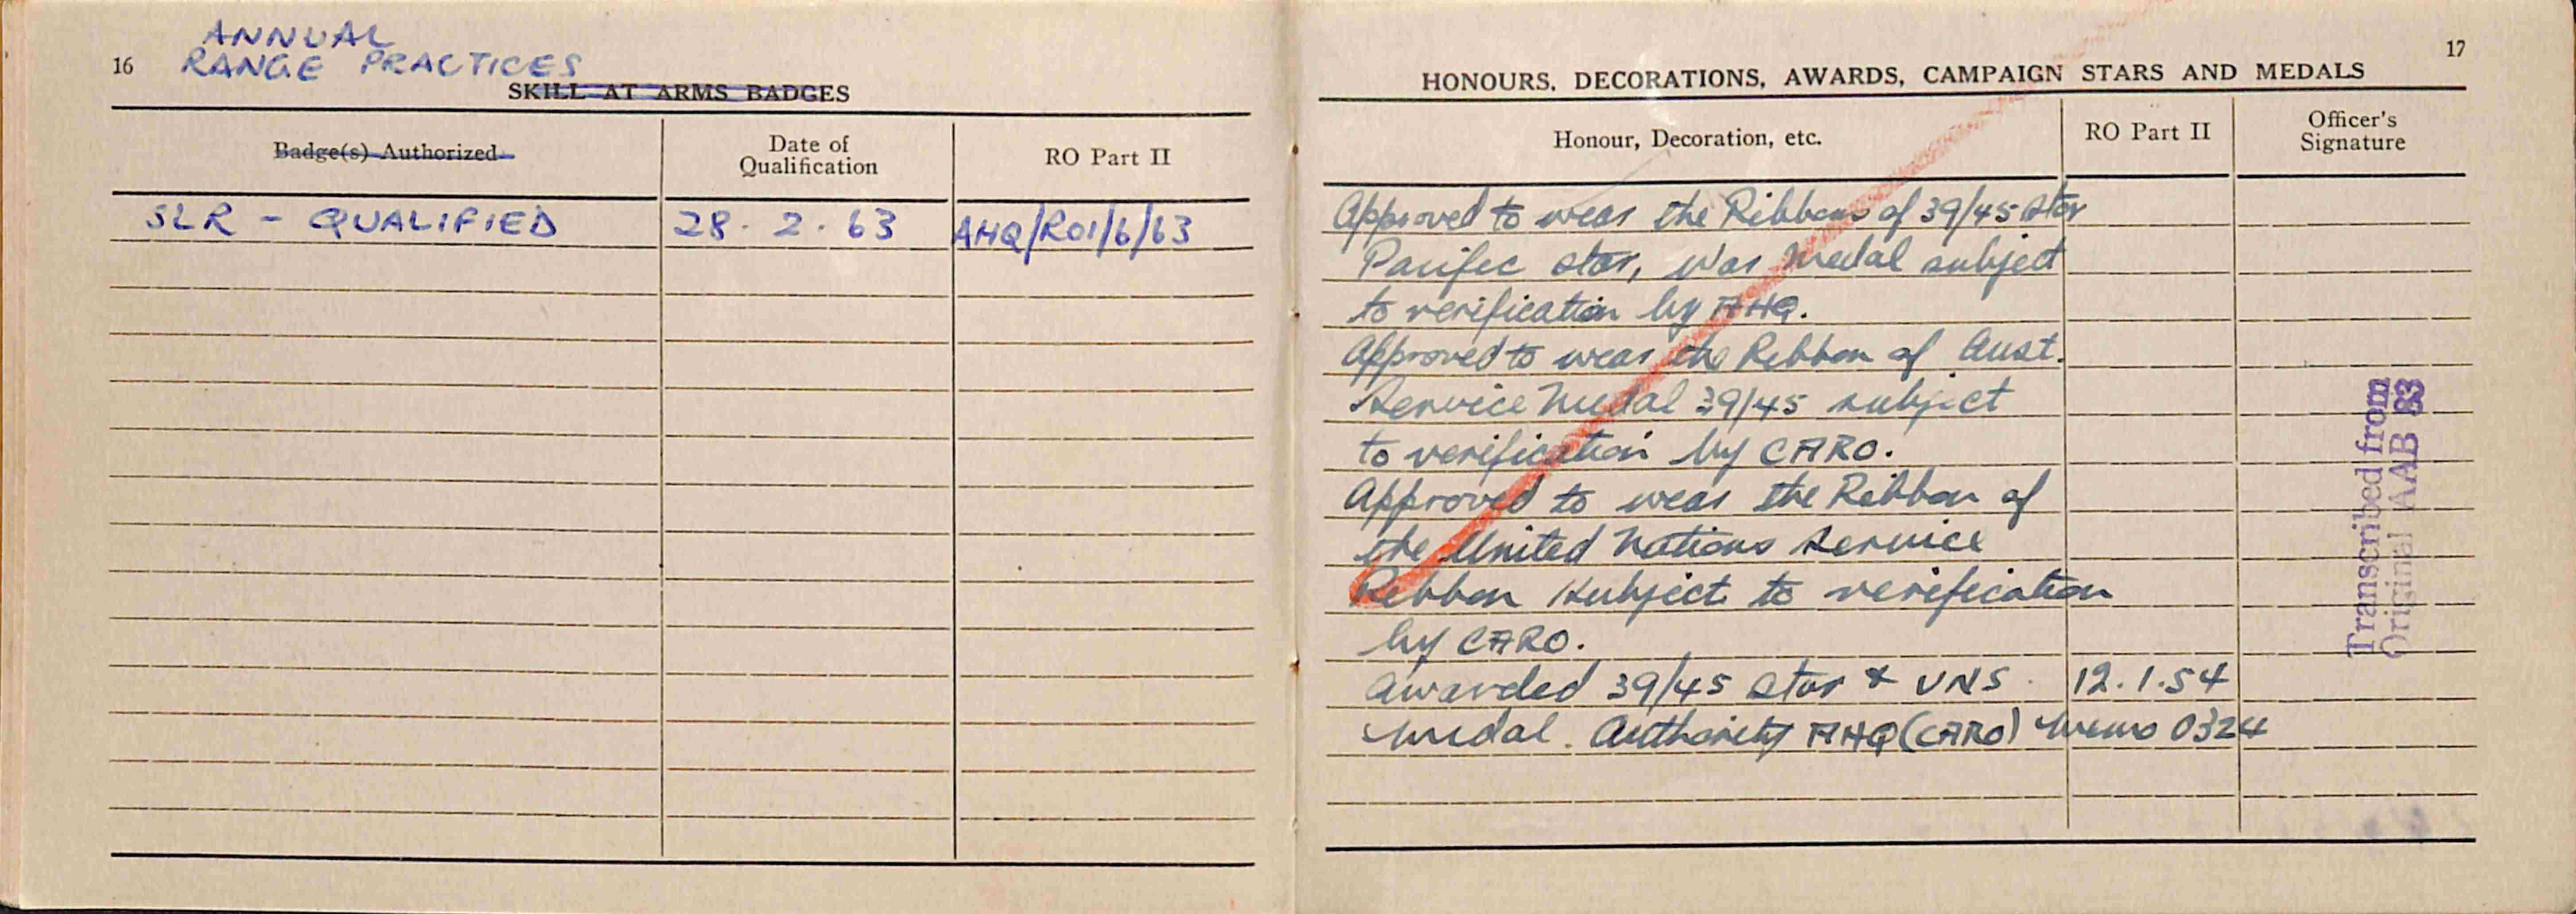 16
ANNUAL
RANGE PRACTICES
SKILL AT ARMS BADGES
Badge(s) Authorized
Date of
Qualification
RO Part II
SLR - QUALIFIED 28. 2. 63 AHQ/RO1/6/63
17
HONOURS, DECORATIONS, AWARDS, CAMPAIGN STARS AND MEDALS
Honour, Decoration, etc.
RO Part II
Officer's
Signature
Approved to wear the Ribbons of 39/45 Star
Pacific Star, War Medal subject
to verification by AHQ.
Approved to wear the Ribbon of Aust.
Service Medal 39/45 subject
to verification by CARO.
Approved to wear the Ribbon of
the United Nations Service
Ribbon subject to verification
by CARO.
Awarded 39/45 Star & UNS 12.1.54
Medal. Authority AHQ (CARO) Memo 0324
Transcribed from
Original AAB 83